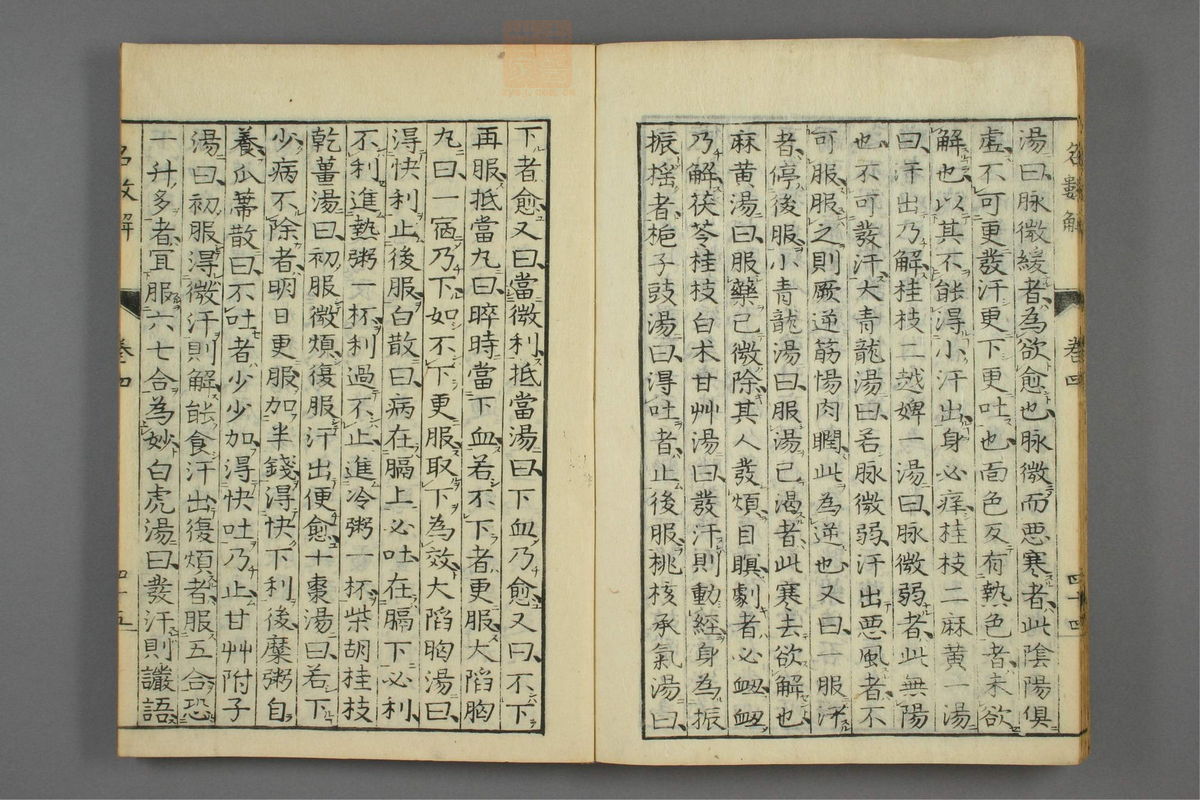 名數解
卷四
四十四
湯曰脉微緩者為欲愈也脉微而悪寒者此陰陽俱
虛不可更發汗更下更吐也面色反有熱色者未欲
解也以其不能得小汗出身必痒桂枝二麻黃一湯
曰汗出乃解桂枝二越婢一湯曰脉微弱者此無陽
也不可發汗大青龍湯曰若脉微弱汗出悪風者不
可服服之則厥逆筋惕肉瞤此為逆也又曰一服汗
者停後服小青龍湯曰服湯已渴者此寒去欲解也
麻黃湯曰服藥已微除其人發煩目瞑劇者必衂衂
乃解茯苓桂枝白朮甘艸湯曰發汗則動經身為振
振揺者梔子豉湯曰得吐者止後服桃核承氣湯曰
下者愈又曰當微利抵當湯曰下血乃愈又曰不下
再服抵當丸曰晬時當下血若不下者更服大陷胸
丸曰一宿乃下如不下更服取下為效大陷胸湯曰
得快利止後服白散曰病在膈上必吐在膈下必利
不利進熱粥一杯利過不止進冷粥一杯柴胡桂枝
乾薑湯曰初服微煩復服汗出便愈十棗湯曰若下
少病不除者明日更服加半錢得快下利後糜粥自
養瓜蒂散曰不吐者少少加得快吐乃止甘艸附子
湯曰初服得微汗則解能食汗出復煩者服五合恐
一升多者宜服六七合為妙白虎湯曰發汗則讝語
名數解
卷四
四十五